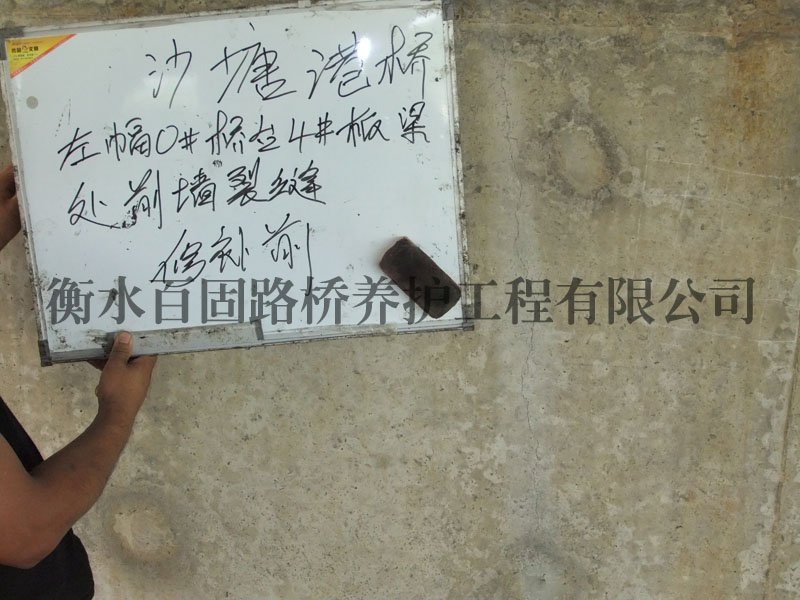 沙塘港桥
左幅0#桥台4#板梁
处前墙裂缝
修补前
衡水百固路桥养护工程有限公司